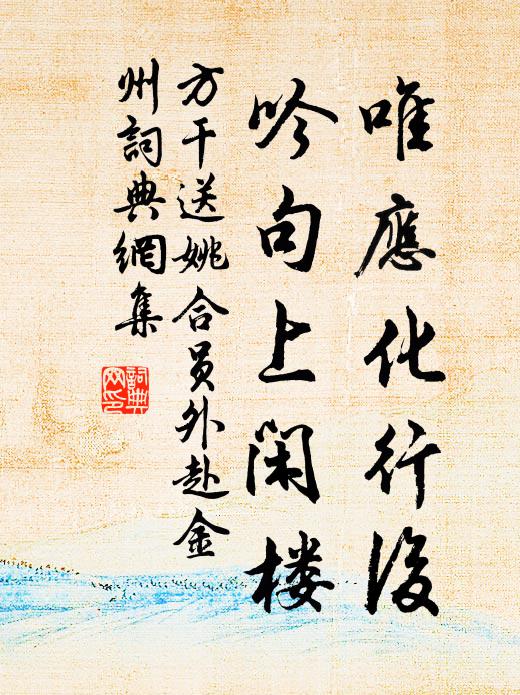 唯應化行後
吟句上閑楼
方干送姚合员外赴金
州詞典網集
詞典网印